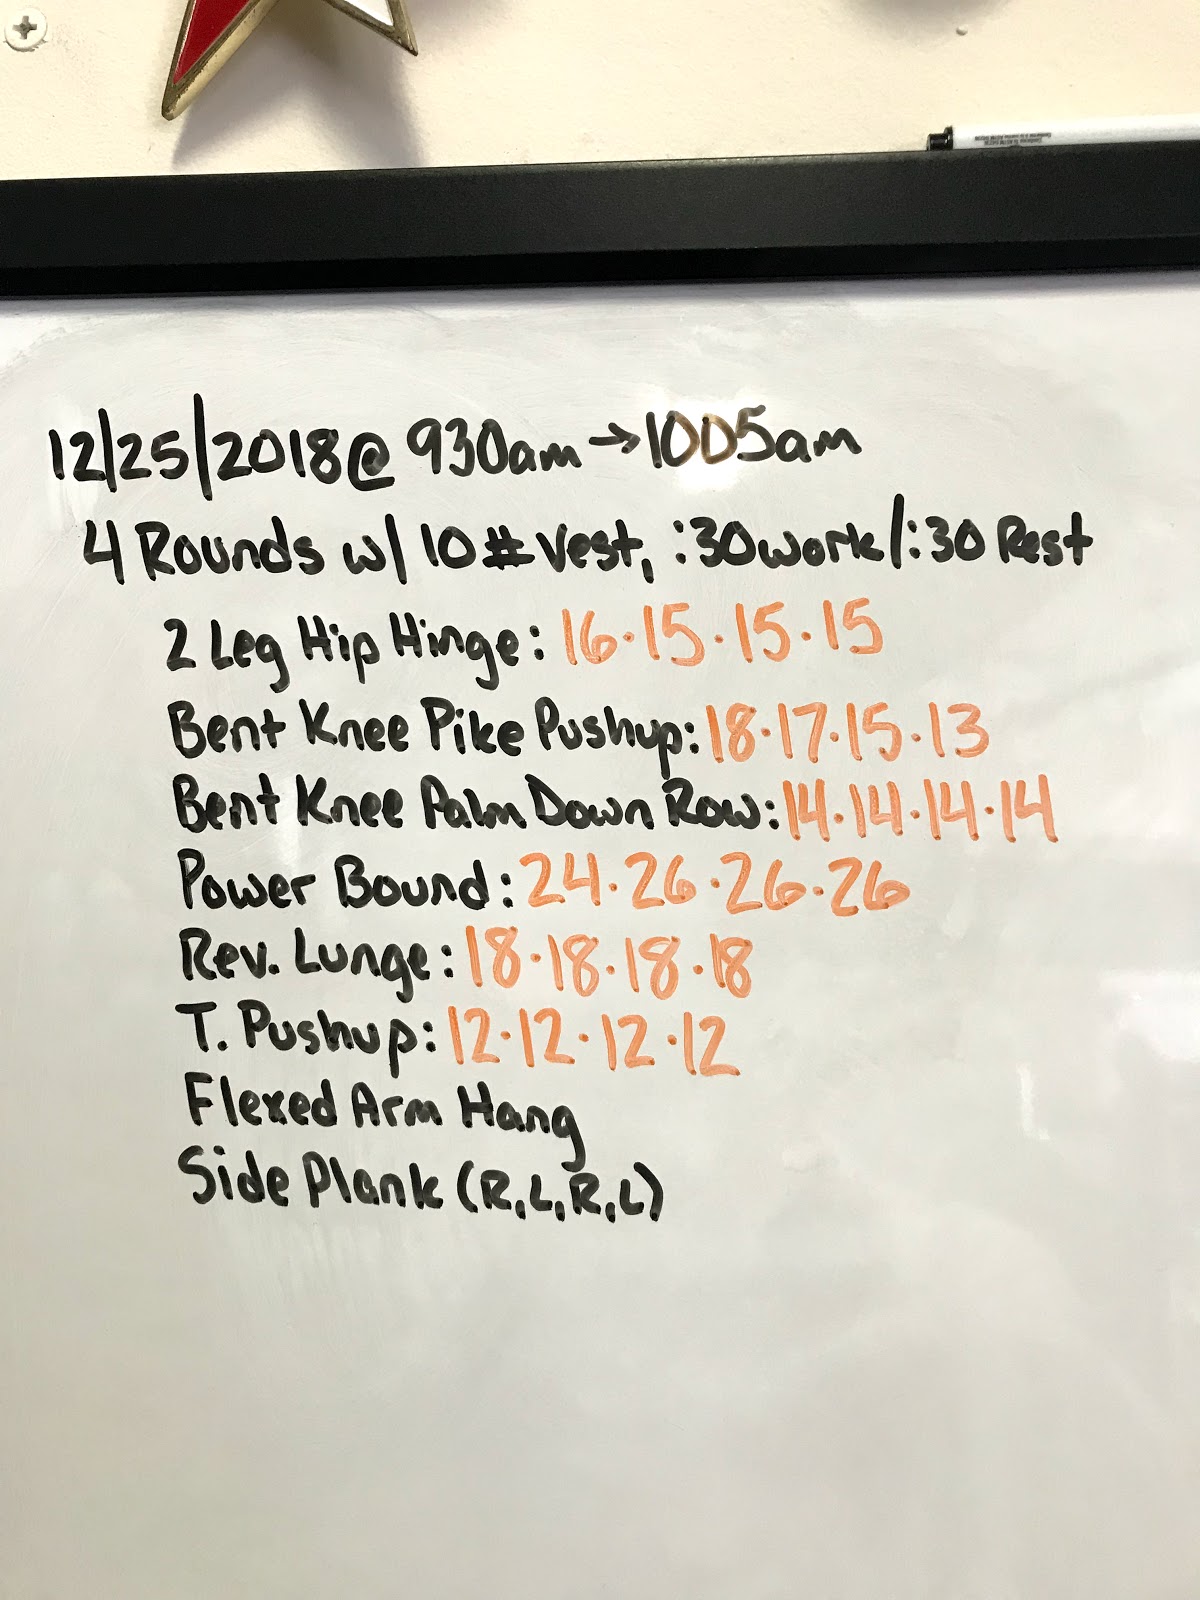 12/25/2018@ 930am→1005am
4 Rounds w/ 10# Vest, :30work/:30 Rest
2 Leg Hip Hinge: 16·15·15·15
Bent Knee Pike Pushup: 18·17·15·13
Bent Knee Palm Down Row: 14·14·14·14
Power Bound: 24·26·26·26
Rev. Lunge: 18·18·18·18
T. Pushup: 12·12·12·12
Flexed Arm Hang
Side Plank (R,L,R,L)